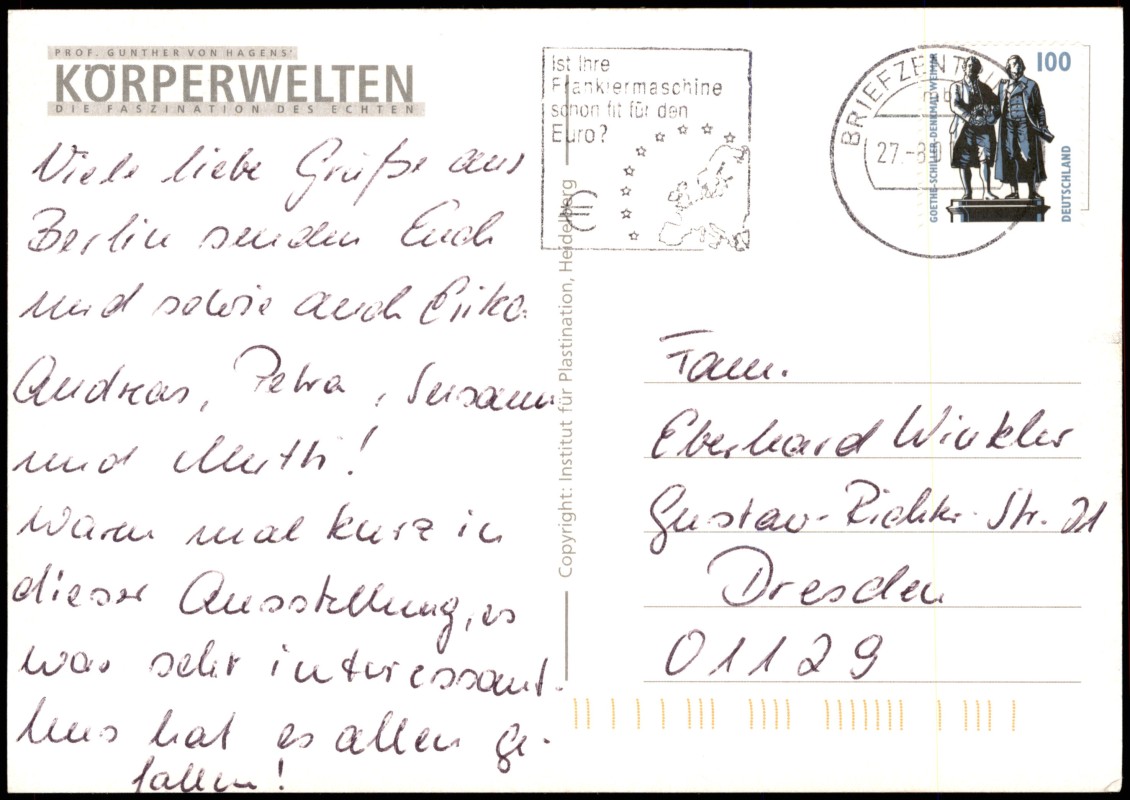 PROF. GUNTHER VON HAGENS'
KÖRPERWELTEN
DIE FASZINATION DES ECHTEN
Viele liebe Grüße aus
Berlin senden Euch
und sowie auch Erika
Andreas, Petra, Susann
und Mutti!
Waren mal kurz in
dieser Ausstellung, es
war sehr interessant.
Uns hat es allen ge-
fallen!
Copyright: Institut für Plastination, Heidelberg
Ist Ihre
Frankiermaschine
schon fit für den
Euro?
BRIEFZENTRUM
27.-8.0
100
GOETHE-SCHILLER-DENKMAL WEIMAR
DEUTSCHLAND
Fam.
Eberhard Winkler
Gustav-Richter-Str. 21
Dresden
01129